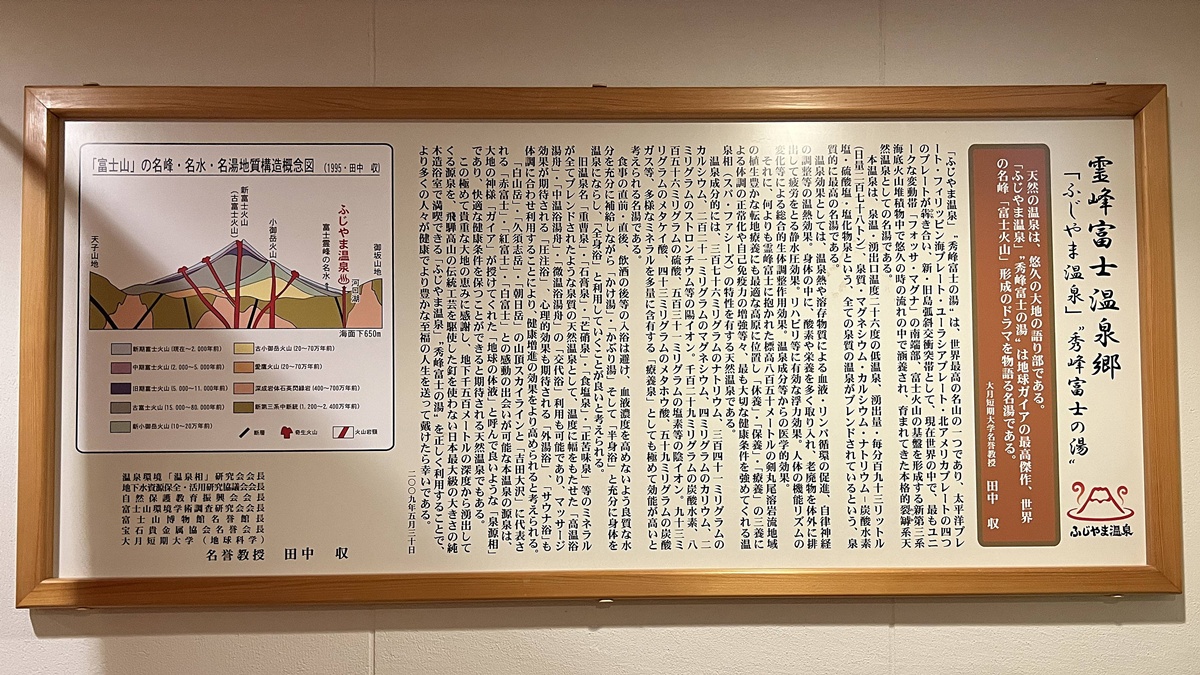 霊峰富士温泉郷
「ふじやま温泉」“秀峰富士の湯”
ふじやま温泉
天然の温泉は、悠久の大地の語り部である。
「ふじやま温泉」“秀峰富士の湯”は地球ガイアの最高傑作、世界
の名峰「富士火山」形成のドラマを物語る名湯である。
大月短期大学名誉教授 田中 収
「ふじやま温泉」“秀峰富士の湯”は、世界最高の名山の一つであり、太平洋プレ
ート・フィリッピン海プレート・ユーラシアプレート・北アメリカプレートの四つ
のプレートが犇き合い、新・旧島弧斜交衝突帯として、現在世界の中で、最もユニ
ークな変動帯「フォッサ・マグナ」の南端部、富士火山の基盤を形成する新第三系
海底火山堆積物中で悠久の時の流れの中で涵養され、育まれてきた本格的裂罅系天
然温泉としての名湯である。
本温泉は、泉温・湧出口温度二十六度の低温泉、湧出量・毎分百九十三リットル
（日量二百七十八トン）、泉質・マグネシウム・カルシウム・ナトリウム・炭酸水素
塩・硫酸塩・塩化物泉という、全ての泉質の温泉がブレンドされているという、泉
質的に最高の名湯である。
温泉効果としては、温熱熱や溶存物質による血液・リンパ循環の促進、自律神経
の調整等の温熱効果、身体の中に、酸素や栄養を多く取り入れ、老廃物を体外に排
出して疲労をとる静水圧効果、リハビリ等に有効な浮力効果。人体の機能リズムの
変化等による総合的生体調整作用効果。温泉成分等からの医学的効果。
それに、何よりも霊峰富士に抱かれた標高八百五十一メートルの剣丸尾溶岩流地域
の植生豊かな転地療養にも最適な高原に位置し、「休養」・「保養」・「療養」の三養に
よる体調の正常化や自己免疫力の増強等々、最も大切な健康条件を強めてくれる温
泉相（スパ・ファシズ）の特性を有する天然温泉である。
温泉成分的には、一百七十六ミリグラムのナトリウム、三百四十一ミリグラムの
カルシウム、二百二十一ミリグラムのマグネシウム、四ミリグラムのカリウム、二
ミリグラムのストロンチウム等の陽イオン。千百二十九ミリグラムの炭酸水素、八
百五十六ミリグラムの硫酸、五百三十一ミリグラムの塩素等の陰イオン。九十三ミ
リグラムのメタケイ酸、四十三ミリグラムのメタホウ酸、五十九ミリグラムの炭酸
ガス等、多様なミネラルを多量に含有する「療養泉」としても極めて効能が高いと
考えられる名湯である。
食事の直前・直後、飲酒の後等の入浴は避け、血液濃度を高めないよう良質な水
分を充分に補給しながら「かけ湯」・「かぶり湯」そして「半身浴」と充分に身体を
温泉にならし、「全身浴」と利用していくことが良いと考えられる。
旧温泉名“重曹泉”・“石膏泉”・“芒硝泉”・“食塩泉”・“正苦味泉”等のミネラル
が全てブレンドされたような泉質の天然温泉として、温度に幅をもたせた“高温浴
湯舟”・“中温浴湯舟”・“微温浴湯舟”の「交代浴」利用も可能であり、マッサージ
効果が期待される「圧注浴」、心理的効果も期待される「外湯浴」・「サウナ浴」も
体調に合わせ利用することにより、健康増進の効果をより高められると考えられる。
「白山岳」・「久須志岳」・「朝日岳」の頂スカイラインと「吉田大沢」に代表さ
れる「赤富士」・「紅富士」・「白富士」との感動の出会いが可能な本温泉の源泉は、
大地の神様“ガイア”が授けてくれた「地球の体液」と呼んで良いような「泉源相」
であり、快適な健康条件を保つことができると期待される天然温泉でもある。
この極めて貴重な大地の恵みに感謝し、地下千五百メートルの深度から湧出して
くる源泉を、飛騨高山の伝統工芸を駆使した釘を使わない日本最大級の大きさの純
木造浴室で満喫できる「ふじやま温泉」“秀峰富士の湯”を正しく利用することで、
より多くの人々が健康でより豊かな至福の人生を送って戴けたら幸いである。
二〇〇九年五月二十日
「富士山」の名峰・名水・名湯地質構造概念図 (1995・田中 収)
天子山地
新富士火山
(古富士火山)
小御岳火山
富士霊峰の名水
ふじやま温泉
河口湖
御坂山地
海面下650m
新期富士火山(現在～2,000年前)
中期富士火山(2,000～5,000年前)
旧期富士火山(5,000～11,000年前)
古富士火山(15,000～80,000年前)
新小御岳火山(10～20万年前)
古小御岳火山(20～70万年前)
愛鷹火山(20～70万年前)
深成岩体石英閃緑岩(400～700万年前)
新第三系中新統(1,200～2,400万年前)
断層
寄生火山
火山岩頸
温泉環境「温泉相」研究会会長
地下水資源保全・活用研究協議会会長
自然保護教育振興会会長
富士山環境学術調査研究会会長
富士山博物館名誉館長
宝石貴金属協会名誉会長
大月短期大学（地球科学）
名誉教授 田中 収